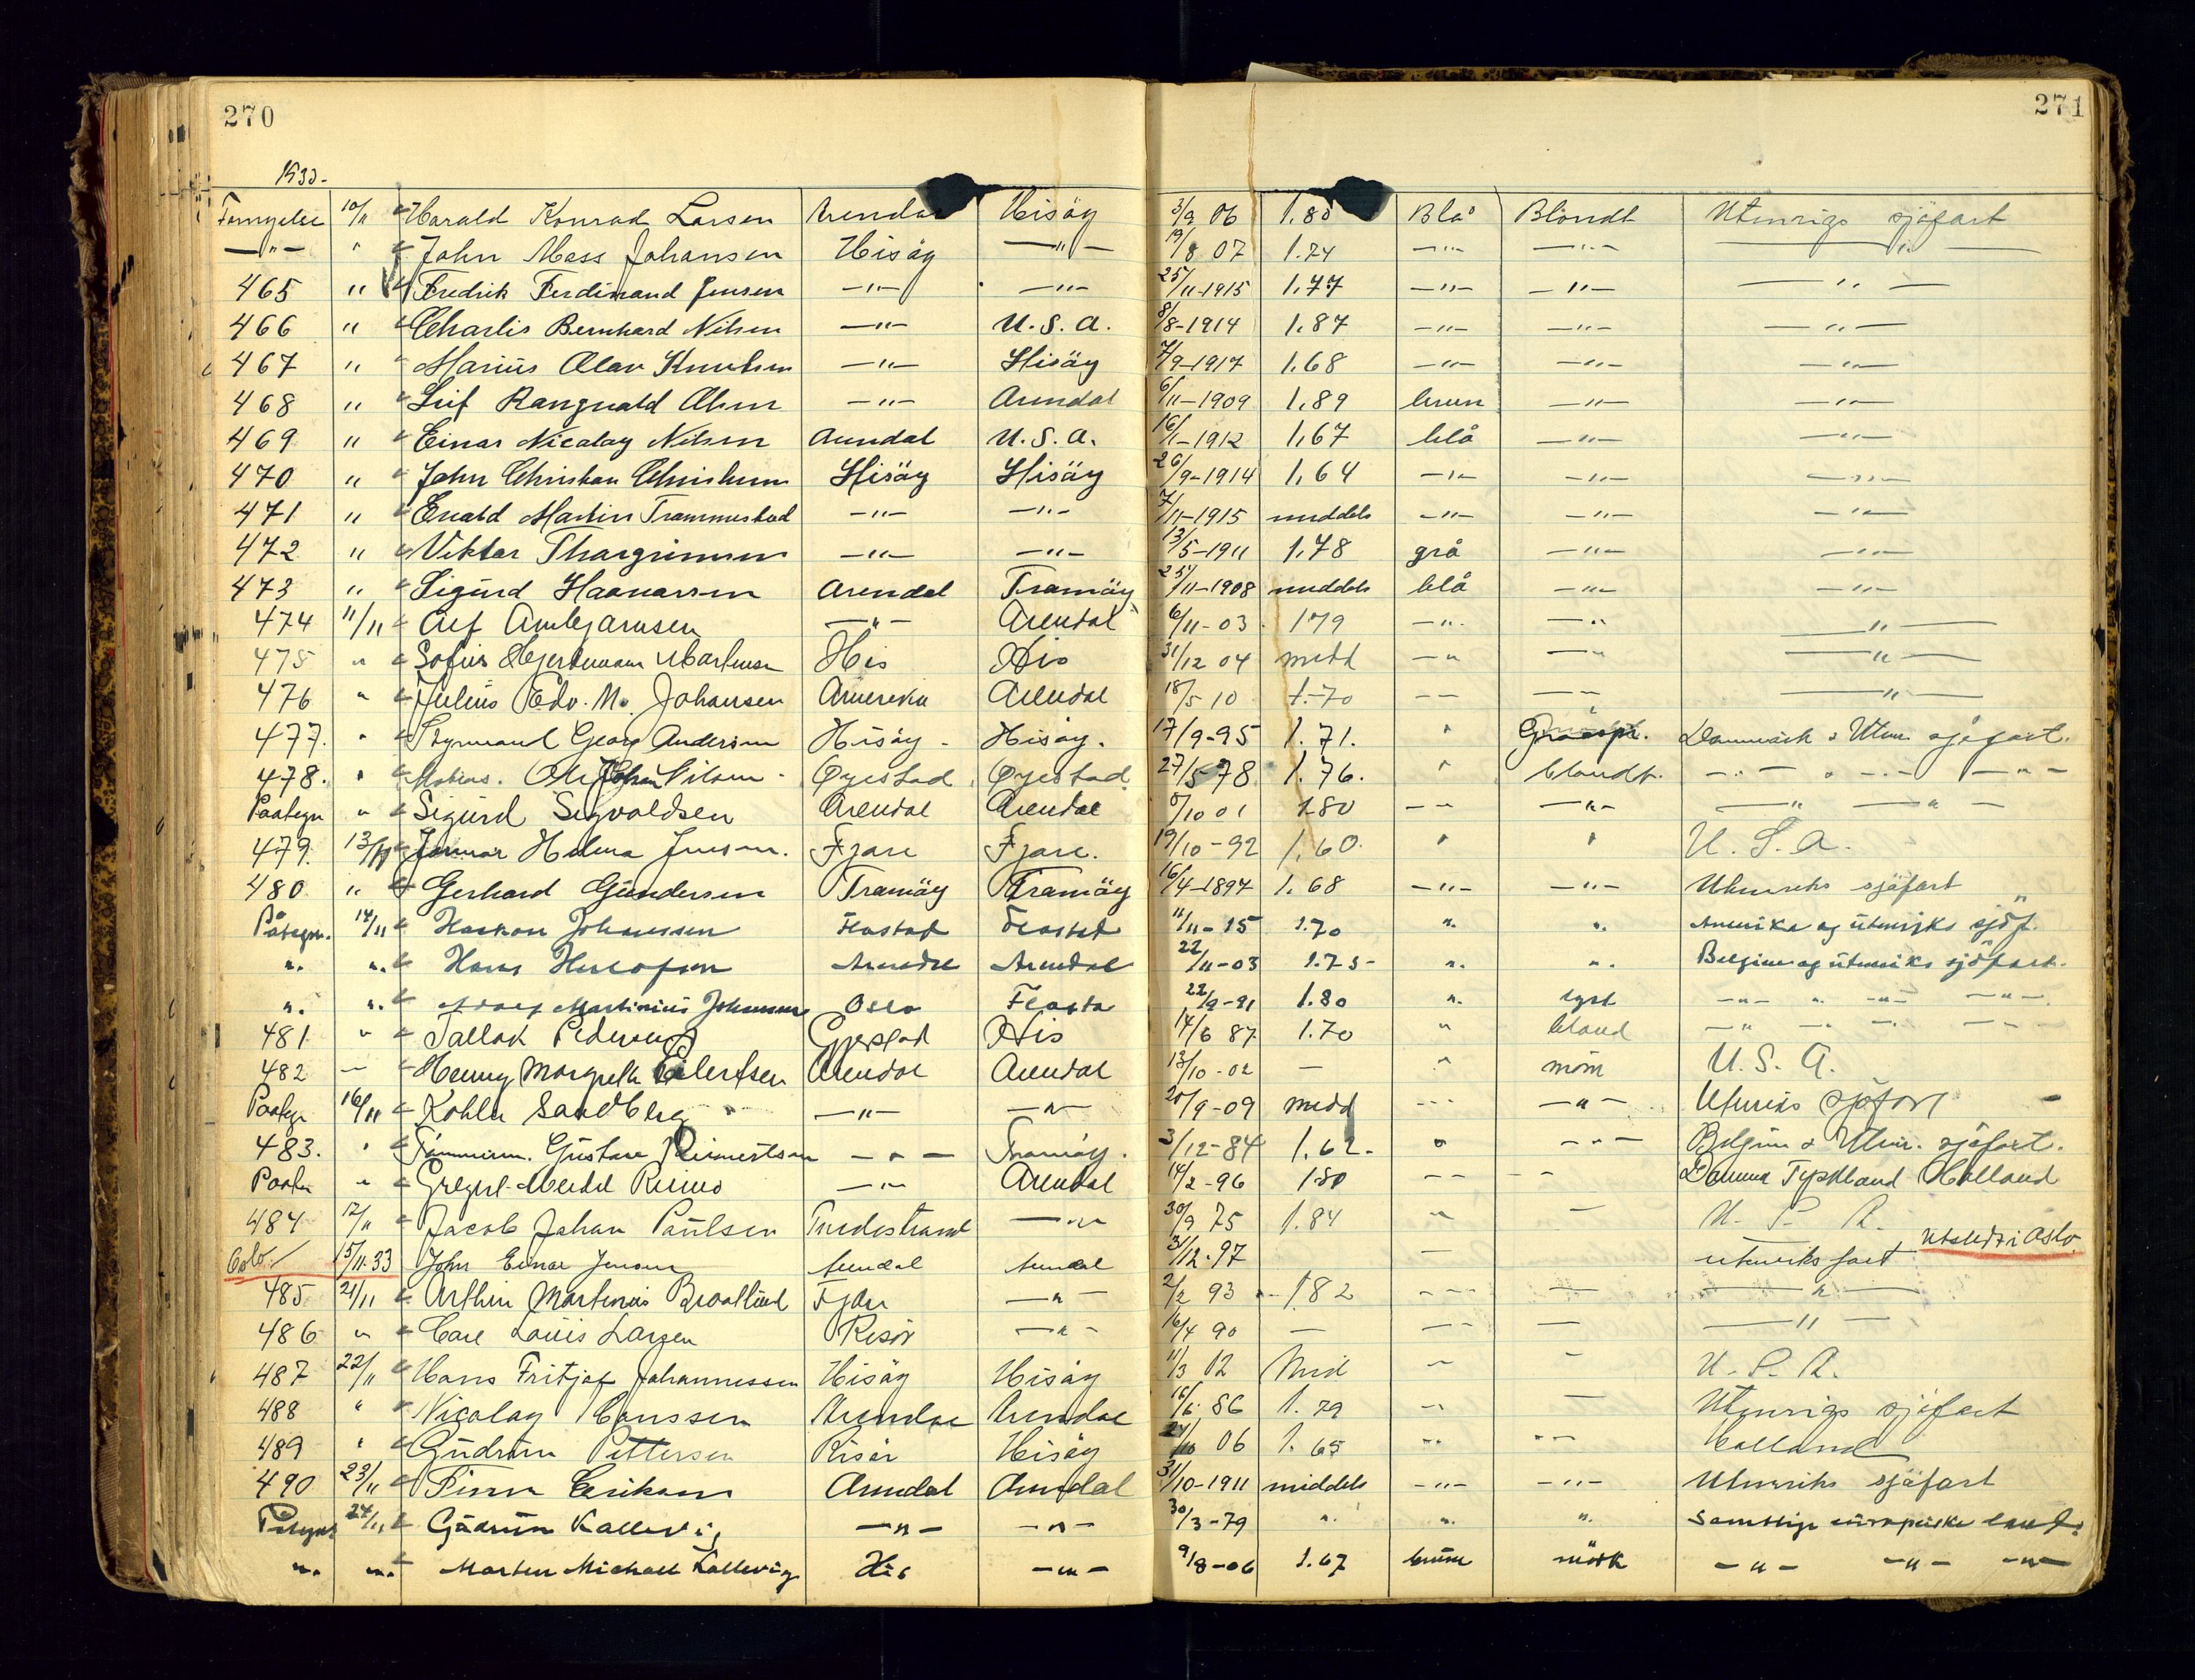 270
271
1933.
Fornyelse 10/11 Harald Konrad Larsen Arendal Hisöy 3/9 06 1.80 Blå Blondt Utenrigs sjöfart
—"— " John Mass Johansen Hisöy —"— 19/8 07 1.74 —"— —"— —"—
465 " Fredrik Ferdinand Jensen —"— —"— 25/11-1915 1,77 —"— —"— —"—
466 " Charlis Bernhard Nilsen —"— U.S.A. 8/8-1914 1,87 —"— —"— —"—
467 " Marius Olav Knutsen —"— Hisöy 7/9-1917 1,68 —"— —"— —"—
468 " Leif Rangvald Olsen —"— Arendal 6/11-1909 1,89 brun —"— —"—
469 " Einar Nicolay Nilsen Arendal U.S.A. 16/1-1912 1,67 blå —"— —"—
470 " John Christian Christensen Hisöy Hisöy 26/9-1914 1,64 —"— —"— —"—
471 " Evald Martin Trommestad —"— —"— 7/11-1915 middels —"— —"— —"—
472 " Viktor Thorgrimsen —"— —"— 13/5-1911 1,78 grå —"— —"—
473 " Sigurd Haavarsen Arendal Tromöy 25/11-1908 middels blå —"— —"—
474 11/11 Alf —"— Arendal 6/11-03 179 —"— —"— —"—
475 " Sofus Martinsen His His 31/12 04 medd —"— —"— —"—
476 " Julius Edv. M. Johansen Amerika Arendal 18/5 10 1.70 —— —— —"—
477. " Georg Andersen Hisöy Hisöy. 17/9-95 1.71. " Gråspr. Danmark & Uten. sjöfart.
478. " Nilsen Oyestad Oyestad 27/5-78 1.76. " blondt. —"— " —"— —"—
Paategn " Sigurd Sigvaldsen Arendal Arendal 8/10 01 180 —— —"— —"— —"—
479. 13/11 Helma Jensen. Fjære Fjære. 19/10-92 1.60. " " U.S.A.
480 " Gerhard Gundersen Tromöy Tromöy 16/4-1897 1,68 —"— —"— Utenriks sjöfart
Påtegn. 14/11 Haakon Johanssen Flostad Flostad 11/11-15 1.70 ". ". Amerika og utenriks sjöf.
". ". Hans Herlofsen Arendal Arendal 22/11-03 1.75- ". ". Belgien og utenriks sjöfart.
". ". Adolf Martinius Johansen Oslo Flosta 22/9-91 1.80 ". lyst —"— ". —"— —"—.
481 " Tallak Pedersen Gjerstad His 14/6 87 1.70 " blond —"— —"— —"— —"—
482 — Henny Margrethe Eilertsen Arendal Arendal 13/10-02 — " mörk U.S.A.
Paategn 16/11 Kohler Sandberg —"— —"— 20/9-09 medd —"— —"— Utenriks sjöfart
483. " Gustav Reinertsen —"— Tromöy. 3/12-84 1.62. " —"— Belgien & Uten. sjöfart.
Paategn " Reime —"— Arendal 14/2-96 180 —— —— Danmark Tyskland Holland
484 17/11 Jacob Johan Paulsen Tvedestrand —"— 30/9 75 1.84 " — U.S.A.
15/11-33 John Einar Jensen Arendal Arendal 31/12-97 — utenriks fart Utstedt i Oslo.
485 21/11 Arthur Martinius Fjære —"— 2/2 93 182 —"— — —"—
486 " Carl Louis Larsen Risör —"— 16/4 90 — —"— — —"—
487 22/11 Hans Fritjof Johannessen Hisöy Hisöy 11/3 02 Mid " — U.S.A.
488 " Nicolay Hanssen Arendal Arendal 16/6 86 1.79 " — Utenrigs sjöfart
489 " Gudrun Pettersen Risör Hisöy 06 1.65 —"— —"— Holland
490 23/11 Finn Eriksen Arendal Arendal 31/10-1911 middels —"— —"— Utenriks sjöfart
Påtegn 24/11 Gudrun Kallevig —"— —"— 30/3-79 ". ". ". Samtlige europeiske land.
". ". Morten Michael Kallevig His —"— 9/8-06 1.67 brune mörk —"— —"— —"—